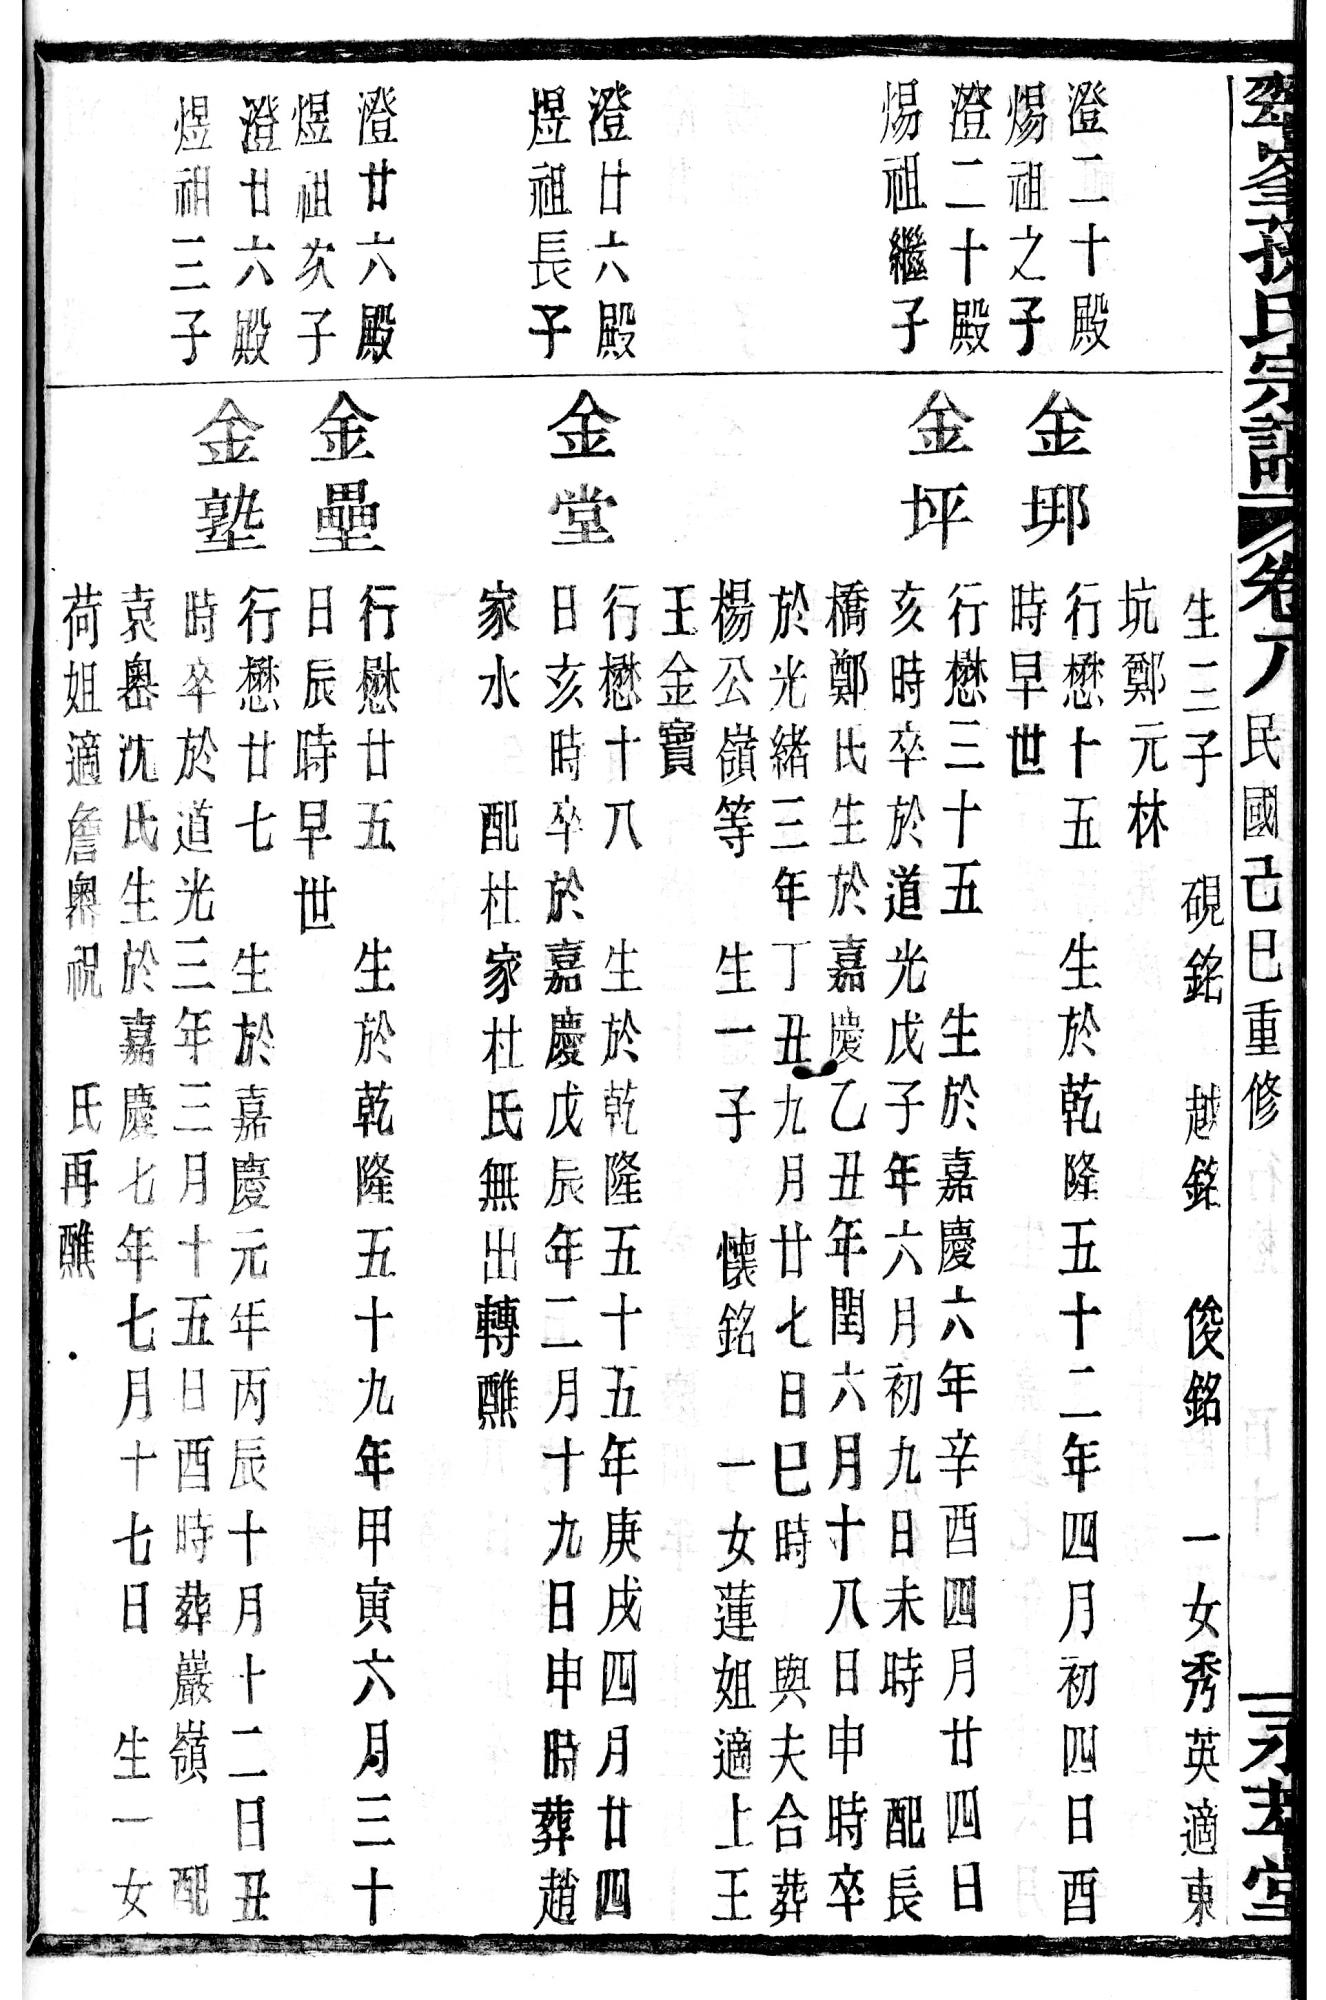 峯孫氏宗譜 卷八 民國己巳重修 永 堂
生三子 硯銘 越銘 俊銘 一女秀英適東
坑鄭元林
澄二十殿
煬祖之子
金邦
行懋十五 生於乾隆五十二年四月初四日酉
時早世
澄二十殿
煬祖繼子
金坪
行懋三十五 生於嘉慶六年辛酉四月廿四日
亥時卒於道光戊子年六月初九日未時 配長
橋鄭氏生於嘉慶乙丑年閏六月十八日申時卒
於光緒三年丁丑九月廿七日巳時 與夫合葬
楊公嶺等 生一子 懷銘 一女蓮姐適上王
王金寶
澄廿六殿
煜祖長子
金堂
行懋十八 生於乾隆五十五年庚戌四月廿四
日亥時卒於嘉慶戊辰年二月十九日申時葬趙
家水 配杜家杜氏無出轉醮
澄廿六殿
煜祖次子
金壘
行懋廿五 生於乾隆五十九年甲寅六月三十
日辰時早世
澄廿六殿
煜祖三子
金塾
行懋廿七 生於嘉慶元年丙辰十月十二日丑
時卒於道光三年三月十五日酉時葬巖嶺 配
袁嶴沈氏生於嘉慶七年七月十七日 生一女
荷姐適詹嶴祝 氏再醮